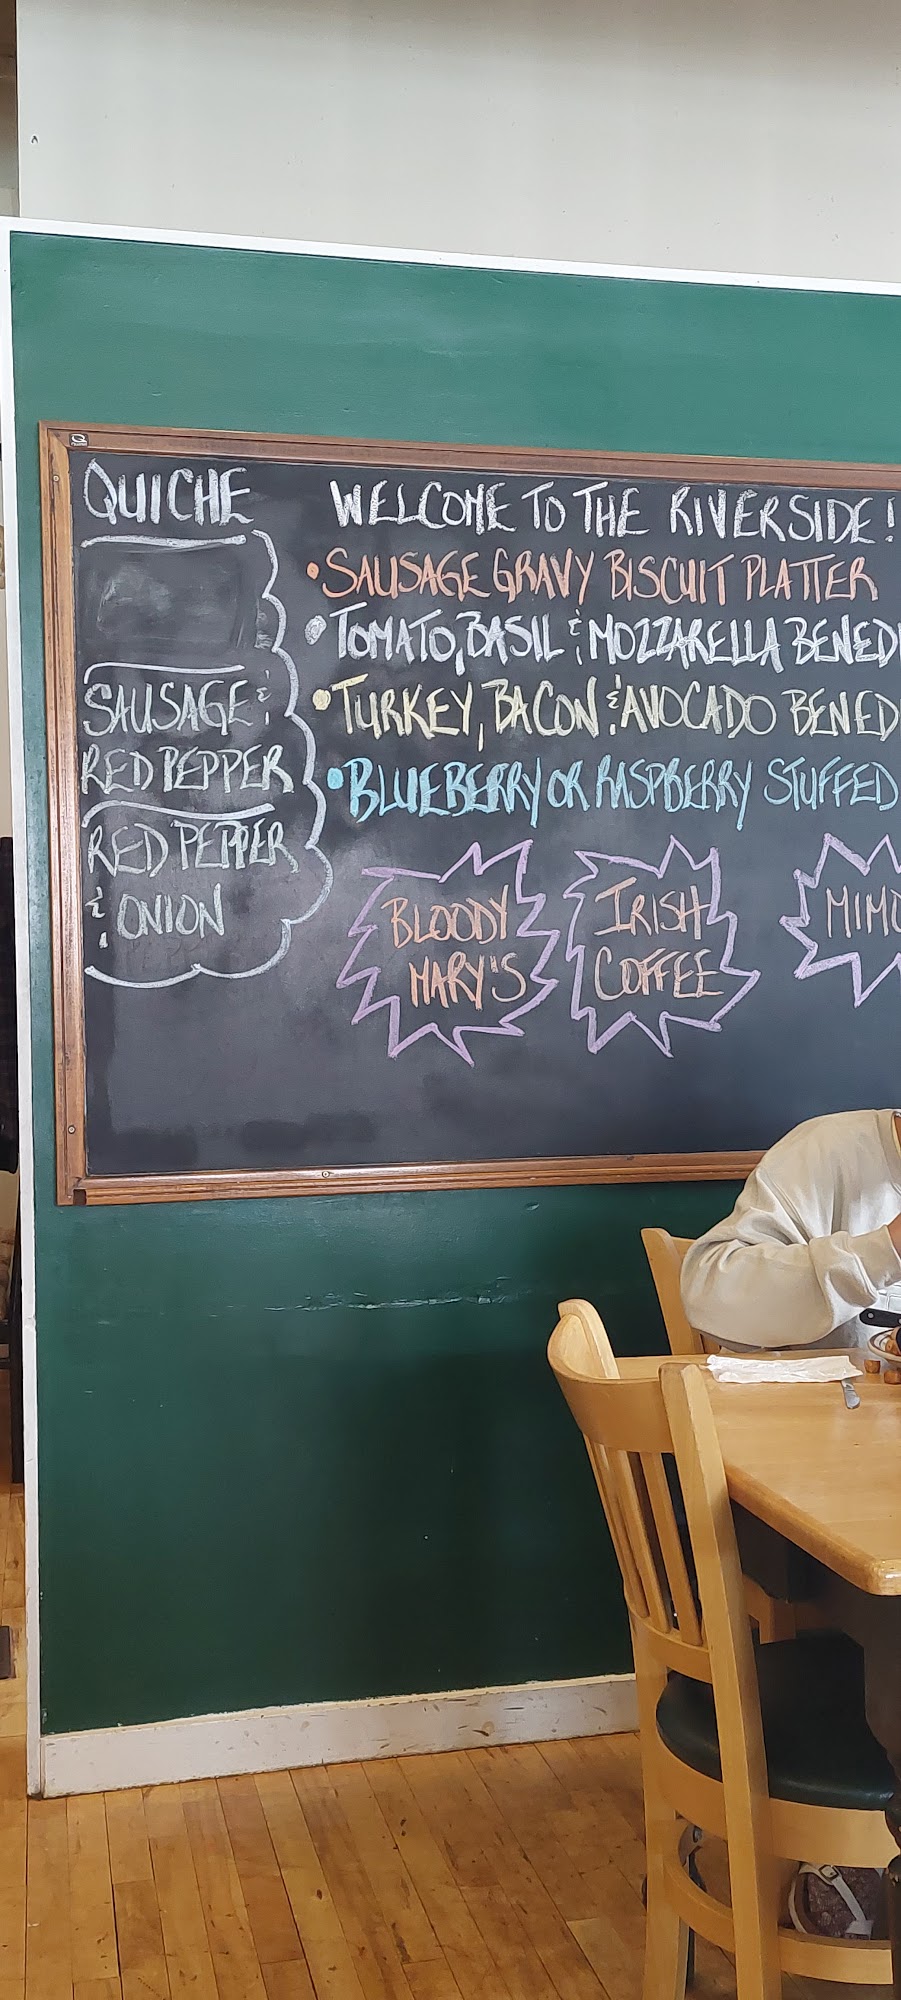 QUICHE
SAUSAGE &
RED PEPPER
RED PEPPER
& ONION
WELCOME TO THE RIVERSIDE!
•SAUSAGE GRAVY BISCUIT PLATTER
•TOMATO, BASIL & MOZZARELLA BENEDI
•TURKEY, BACON & AVOCADO BENED
•BLUEBERRY OR RASPBERRY STUFFED
BLOODY
MARY'S
IRISH
COFFEE
MIMO